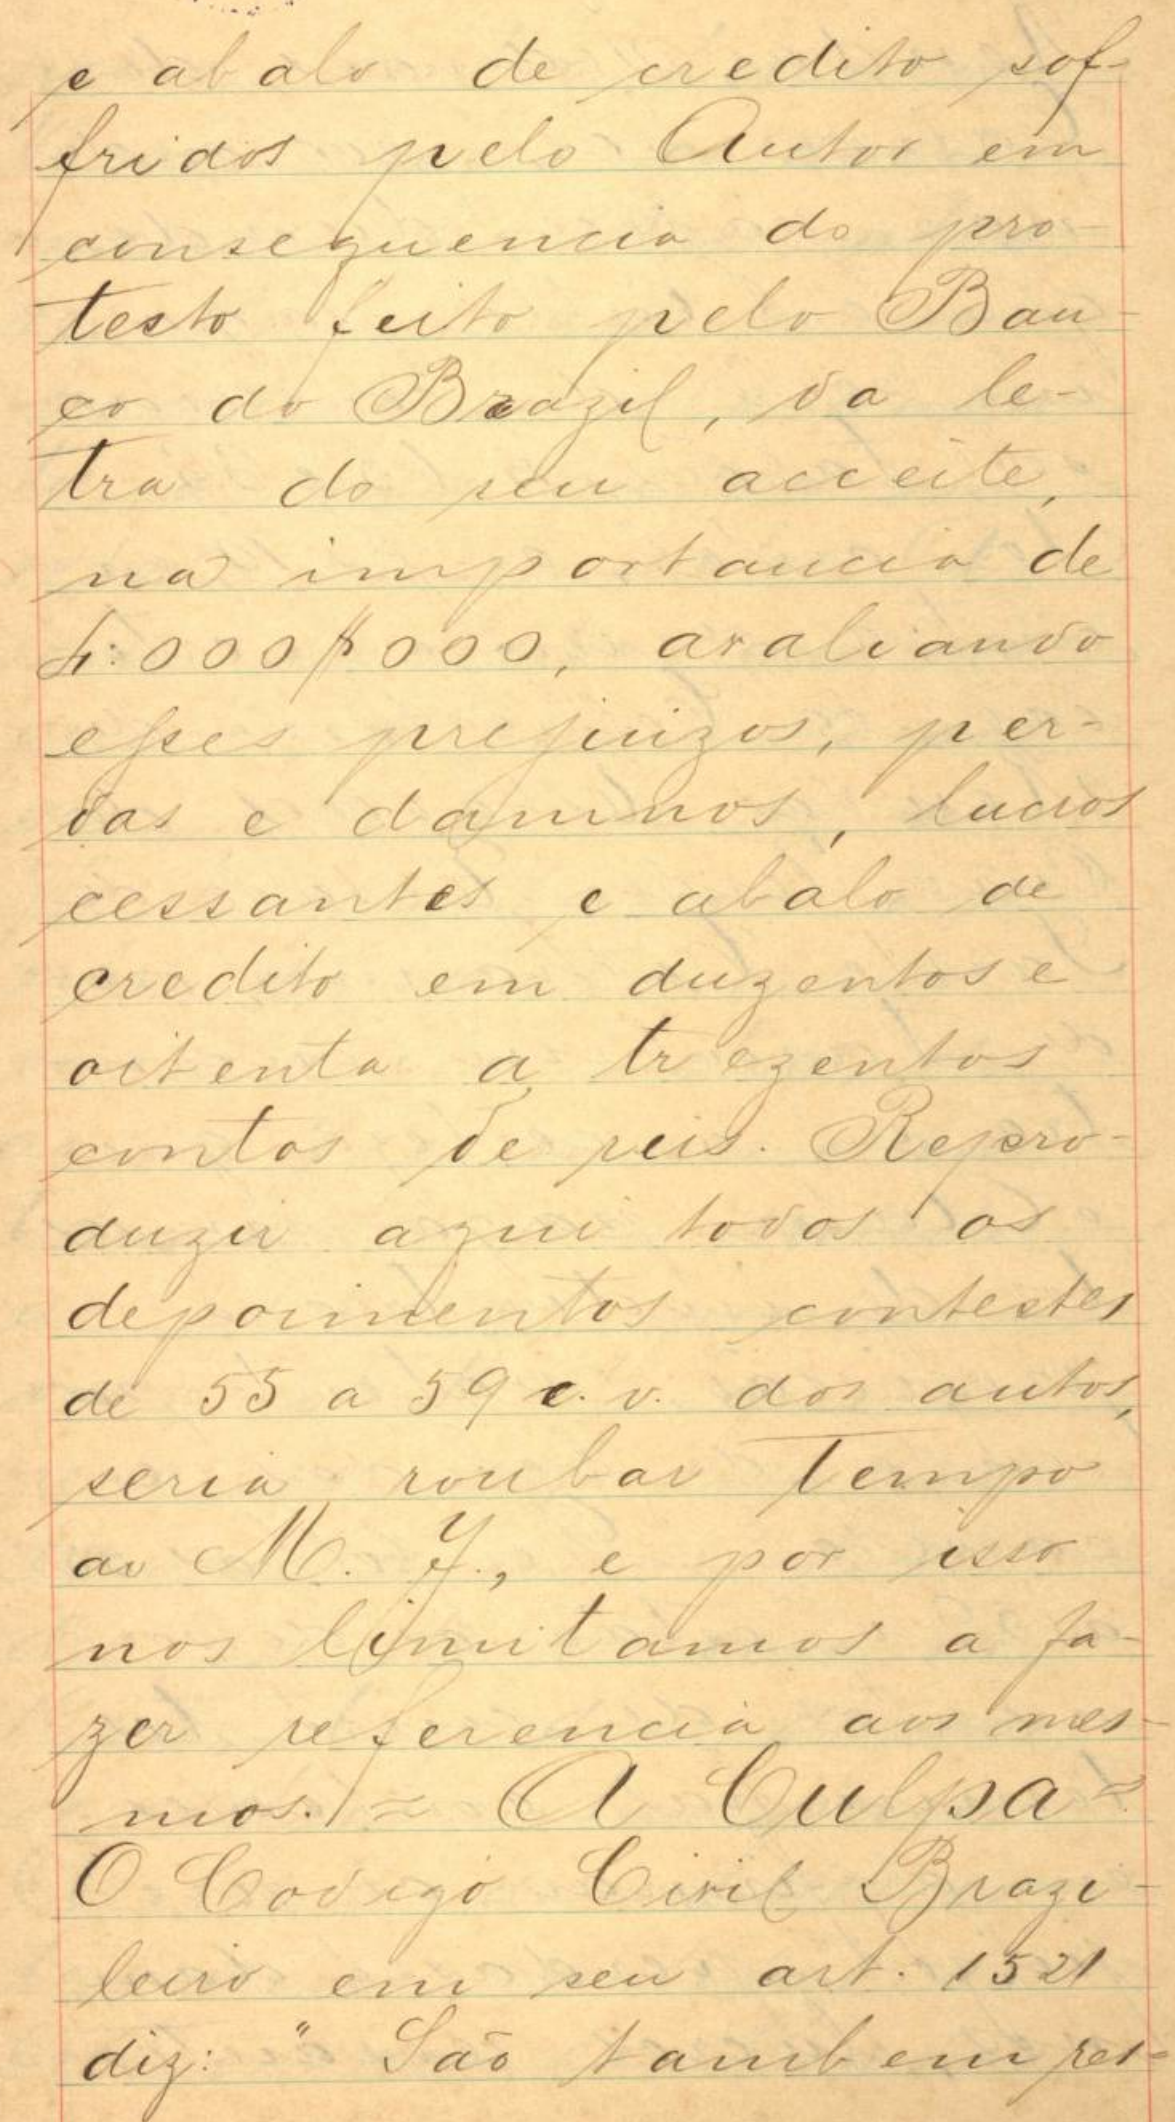 e abalo de credito sof-
fridos pelo Autor em
consequencia do pro-
testo feito pelo Ban-
co do Brazil, da le-
tra do seu acceite,
na importancia de
4:000$000, avaliando
esses prejuizos, per-
das e damnos, lucros
cessantes e abalo de
credito em duzentos e
oitenta a trezentos
contos de reis. Repro-
duzir aqui todos os
depoimentos contestes
de 55 a 59 e. v. dos autos,
seria roubar tempo
ao M. J., e por isso
nos limitamos a fa-
zer referencia aos mes-
mos. = A Culpa =
O Codigo Civil Brazi-
leiro em seu art. 1521
diz: " São tambem res-